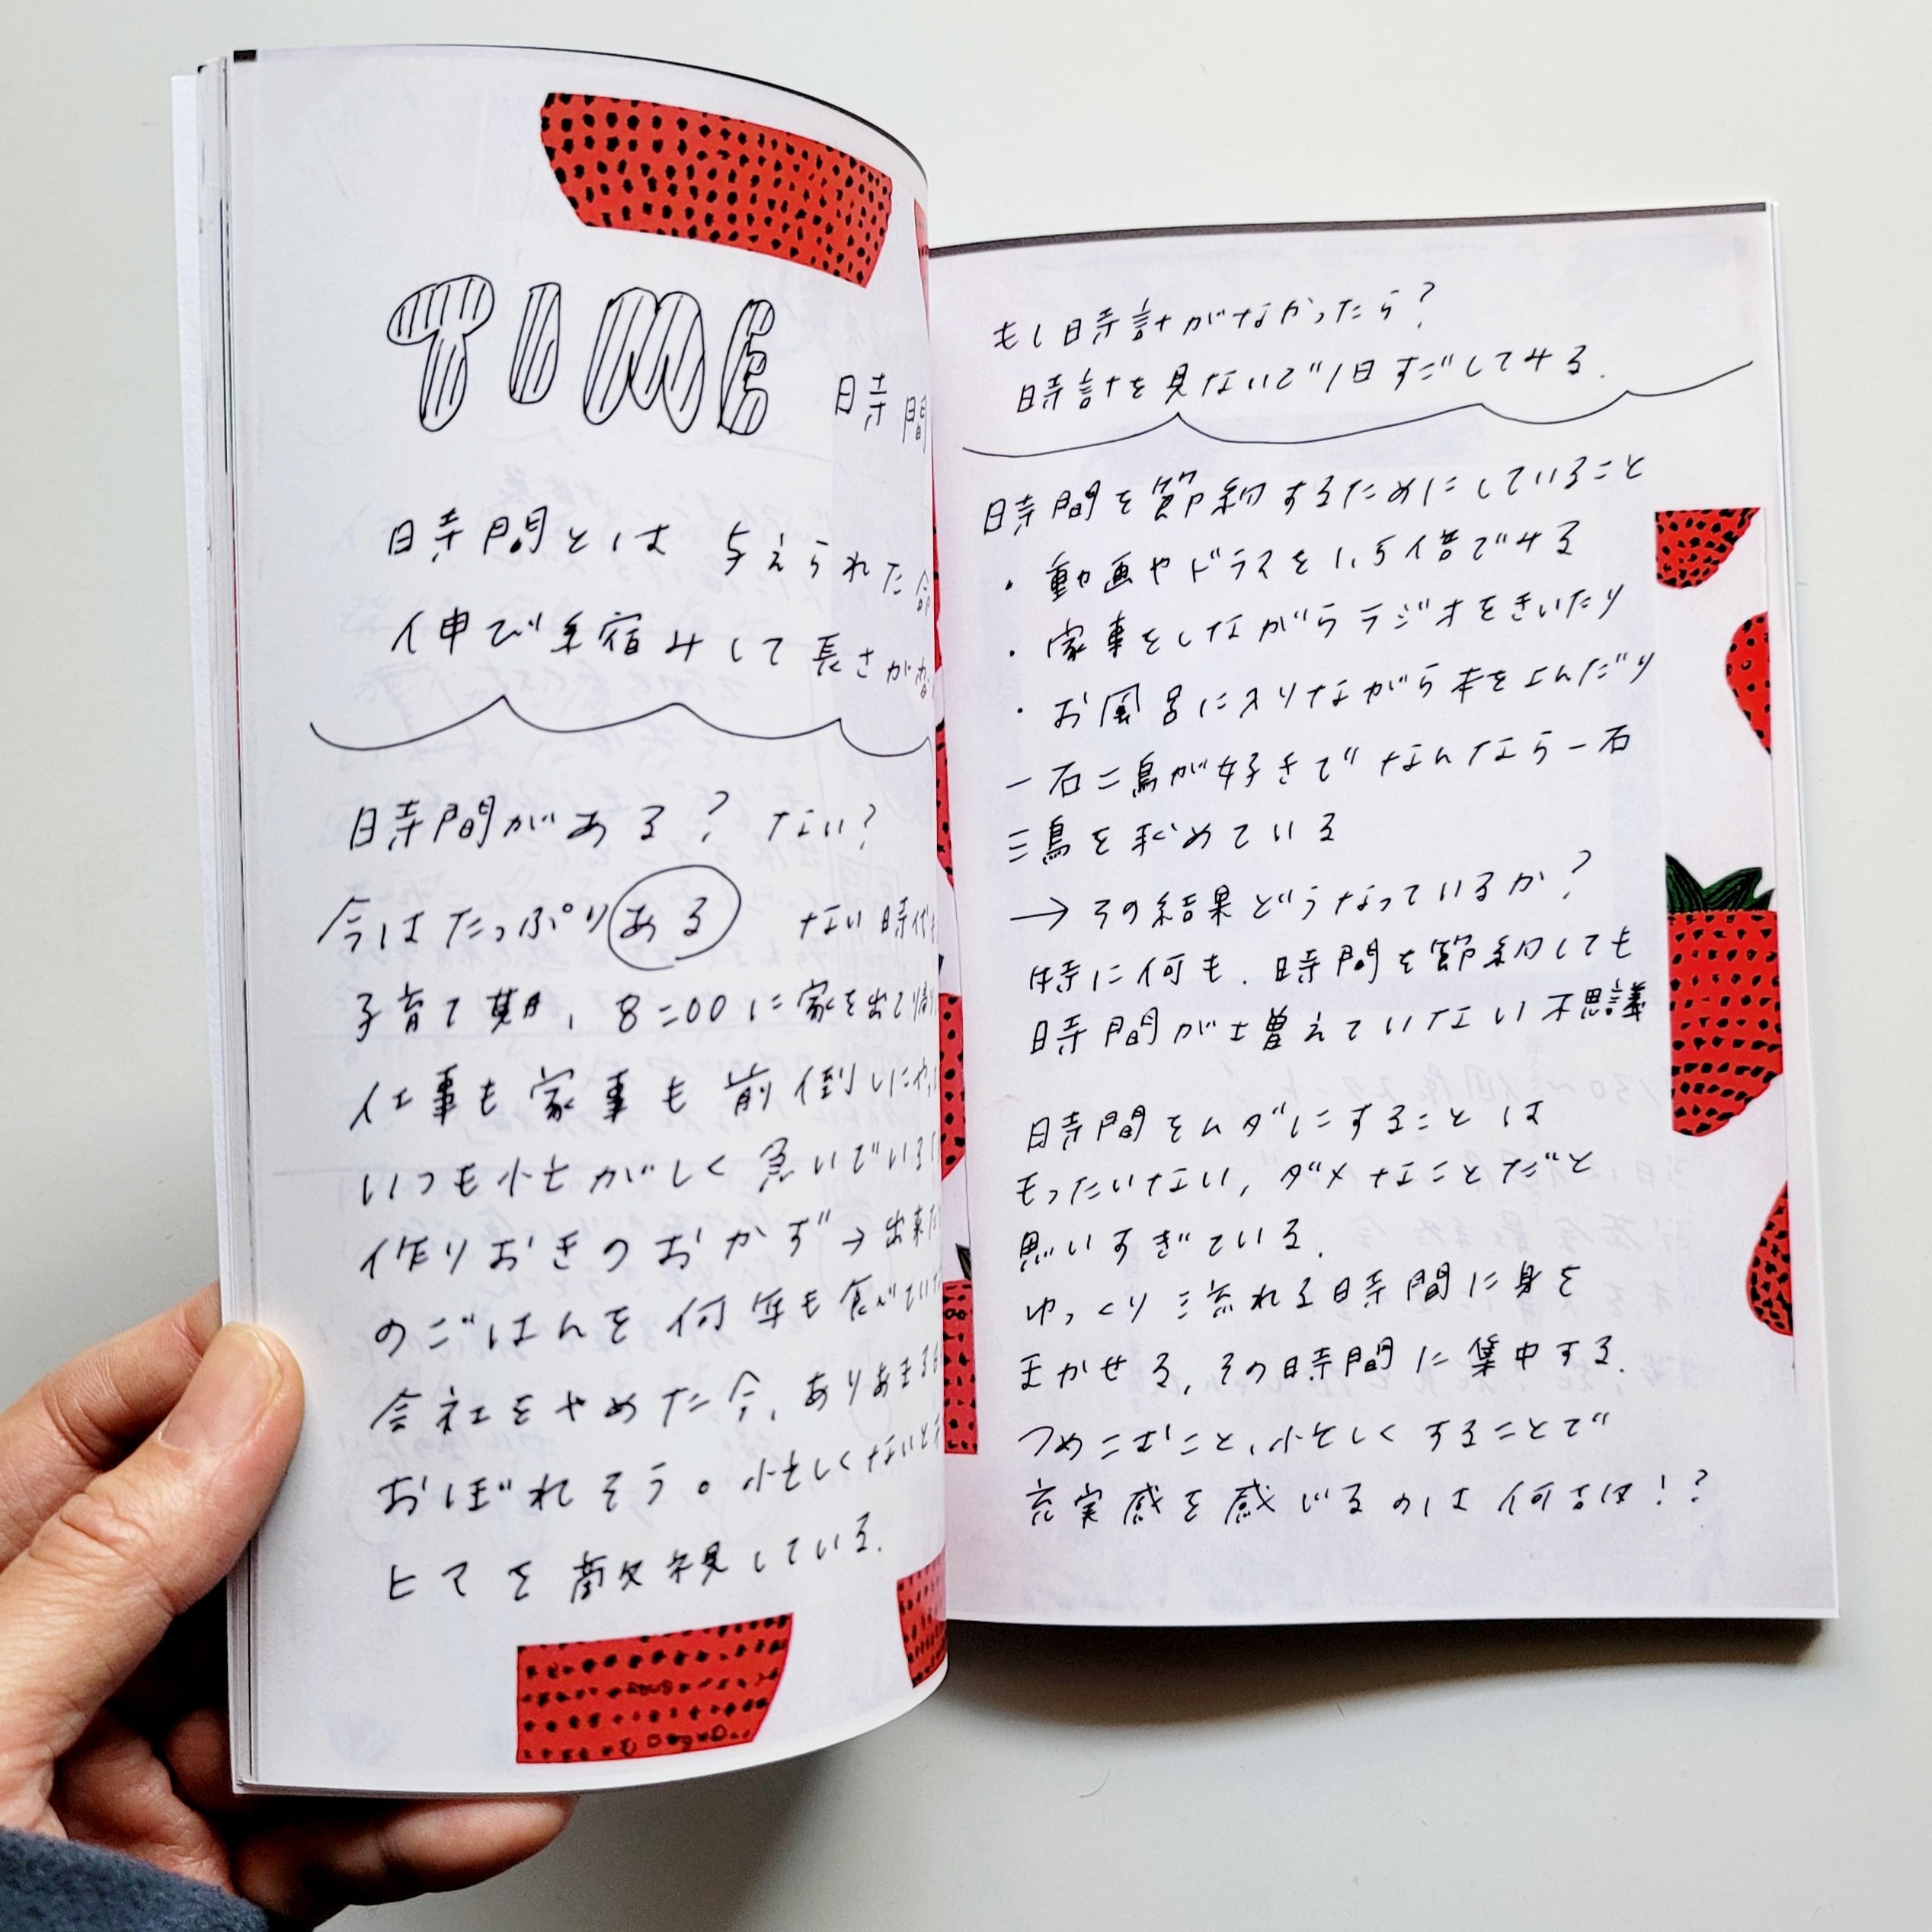 TIME
時間
時間とは 与えられた命
伸び縮みして長さが
時間がある? ない?
今はたっぷりある ない時代
子育て期、8=00に家を出て帰り
仕事も家事も前倒しにやっ
いつも忙がしく急いでいる
作りおきのおかず→出来た
のごはんを何年も食べていた
会社をやめた今、ありあまる
おぼれそう。忙しくないと
ヒマを敵視している.
もし時計がなかったら?
時計を見ないで1日すごしてみる.
時間を節約するためにしていること
・動画やドラマを1.5倍でみる
・家事をしながらラジオをきいたり
・お風呂に入りながら本をよんだり
一石二鳥が好きで なんなら一石
三鳥を求めている
→その結果どうなっているか?
特に何も. 時間を節約しても
時間が増えていない不思議
時間をムダにすることは
もったいない, ダメなことだと
思いすぎている.
ゆっくり流れる時間に身を
まかせる, その時間に集中する.
つめこむこと, 忙しくすることで
充実感を感じるのは何故!?